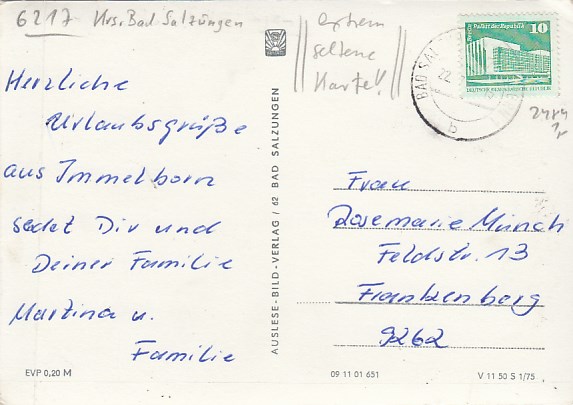 6217 Krs. Bad Salzungen
extrem
seltene
Karte!
Palast der Republik
10
DEUTSCHE DEMOKRATISCHE REPUBLIK
BAD SAL
22
b
Herzliche
Urlaubsgrüße
aus Immelborn
sendet Dir und
Deiner Familie
Martina u.
Familie
AUSLESE-BILD-VERLAG / 62 BAD SALZUNGEN
Frau
Rosemarie Münch
Feldstr. 13
Frankenberg
9262
EVP 0,20 M
09 11 01 651
V 11 50 S 1/75